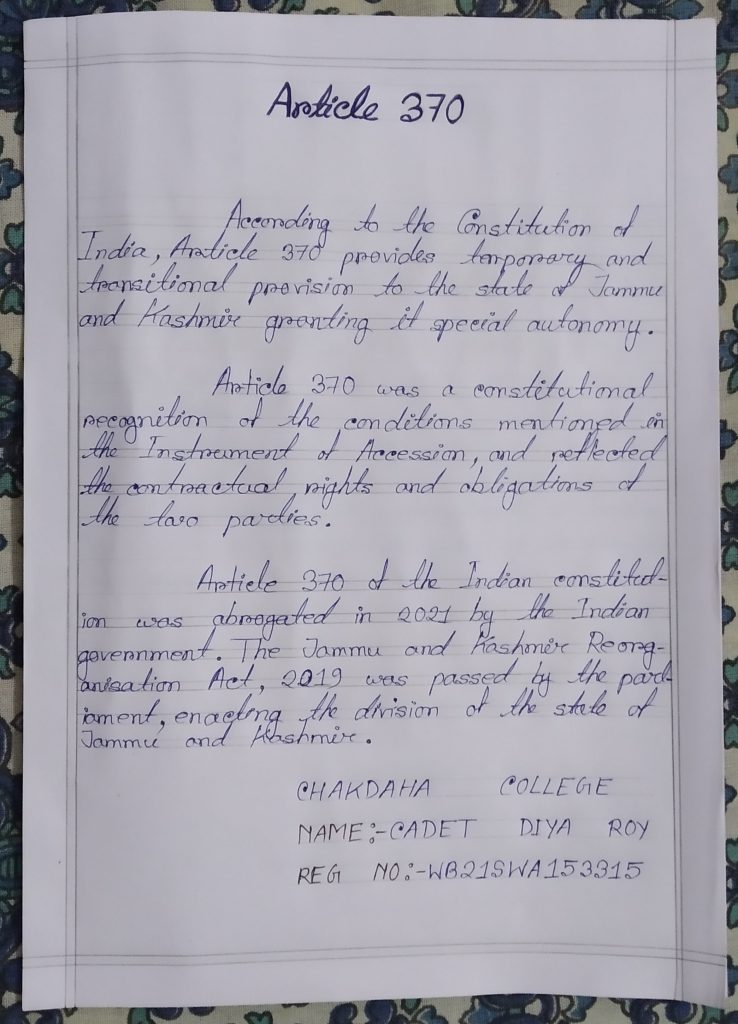 Article 370
According to the Constitution of
India, Article 370 provides temporary and
transitional provision to the state of Jammu
and Kashmir granting it special autonomy.
Article 370 was a constitutional
recognition of the conditions mentioned in
the Instrument of Accession, and reflected
the contractual rights and obligations of
the two parties.
Article 370 of the Indian constitut-
ion was abrogated in 2021 by the Indian
government. The Jammu and Kashmir Reorg-
anisation Act, 2019 was passed by the parl-
iament, enacting the division of the state of
Jammu and Kashmir.
CHAKDAHA COLLEGE
NAME:-CADET DIYA ROY
REG NO:-WB21SWA153315